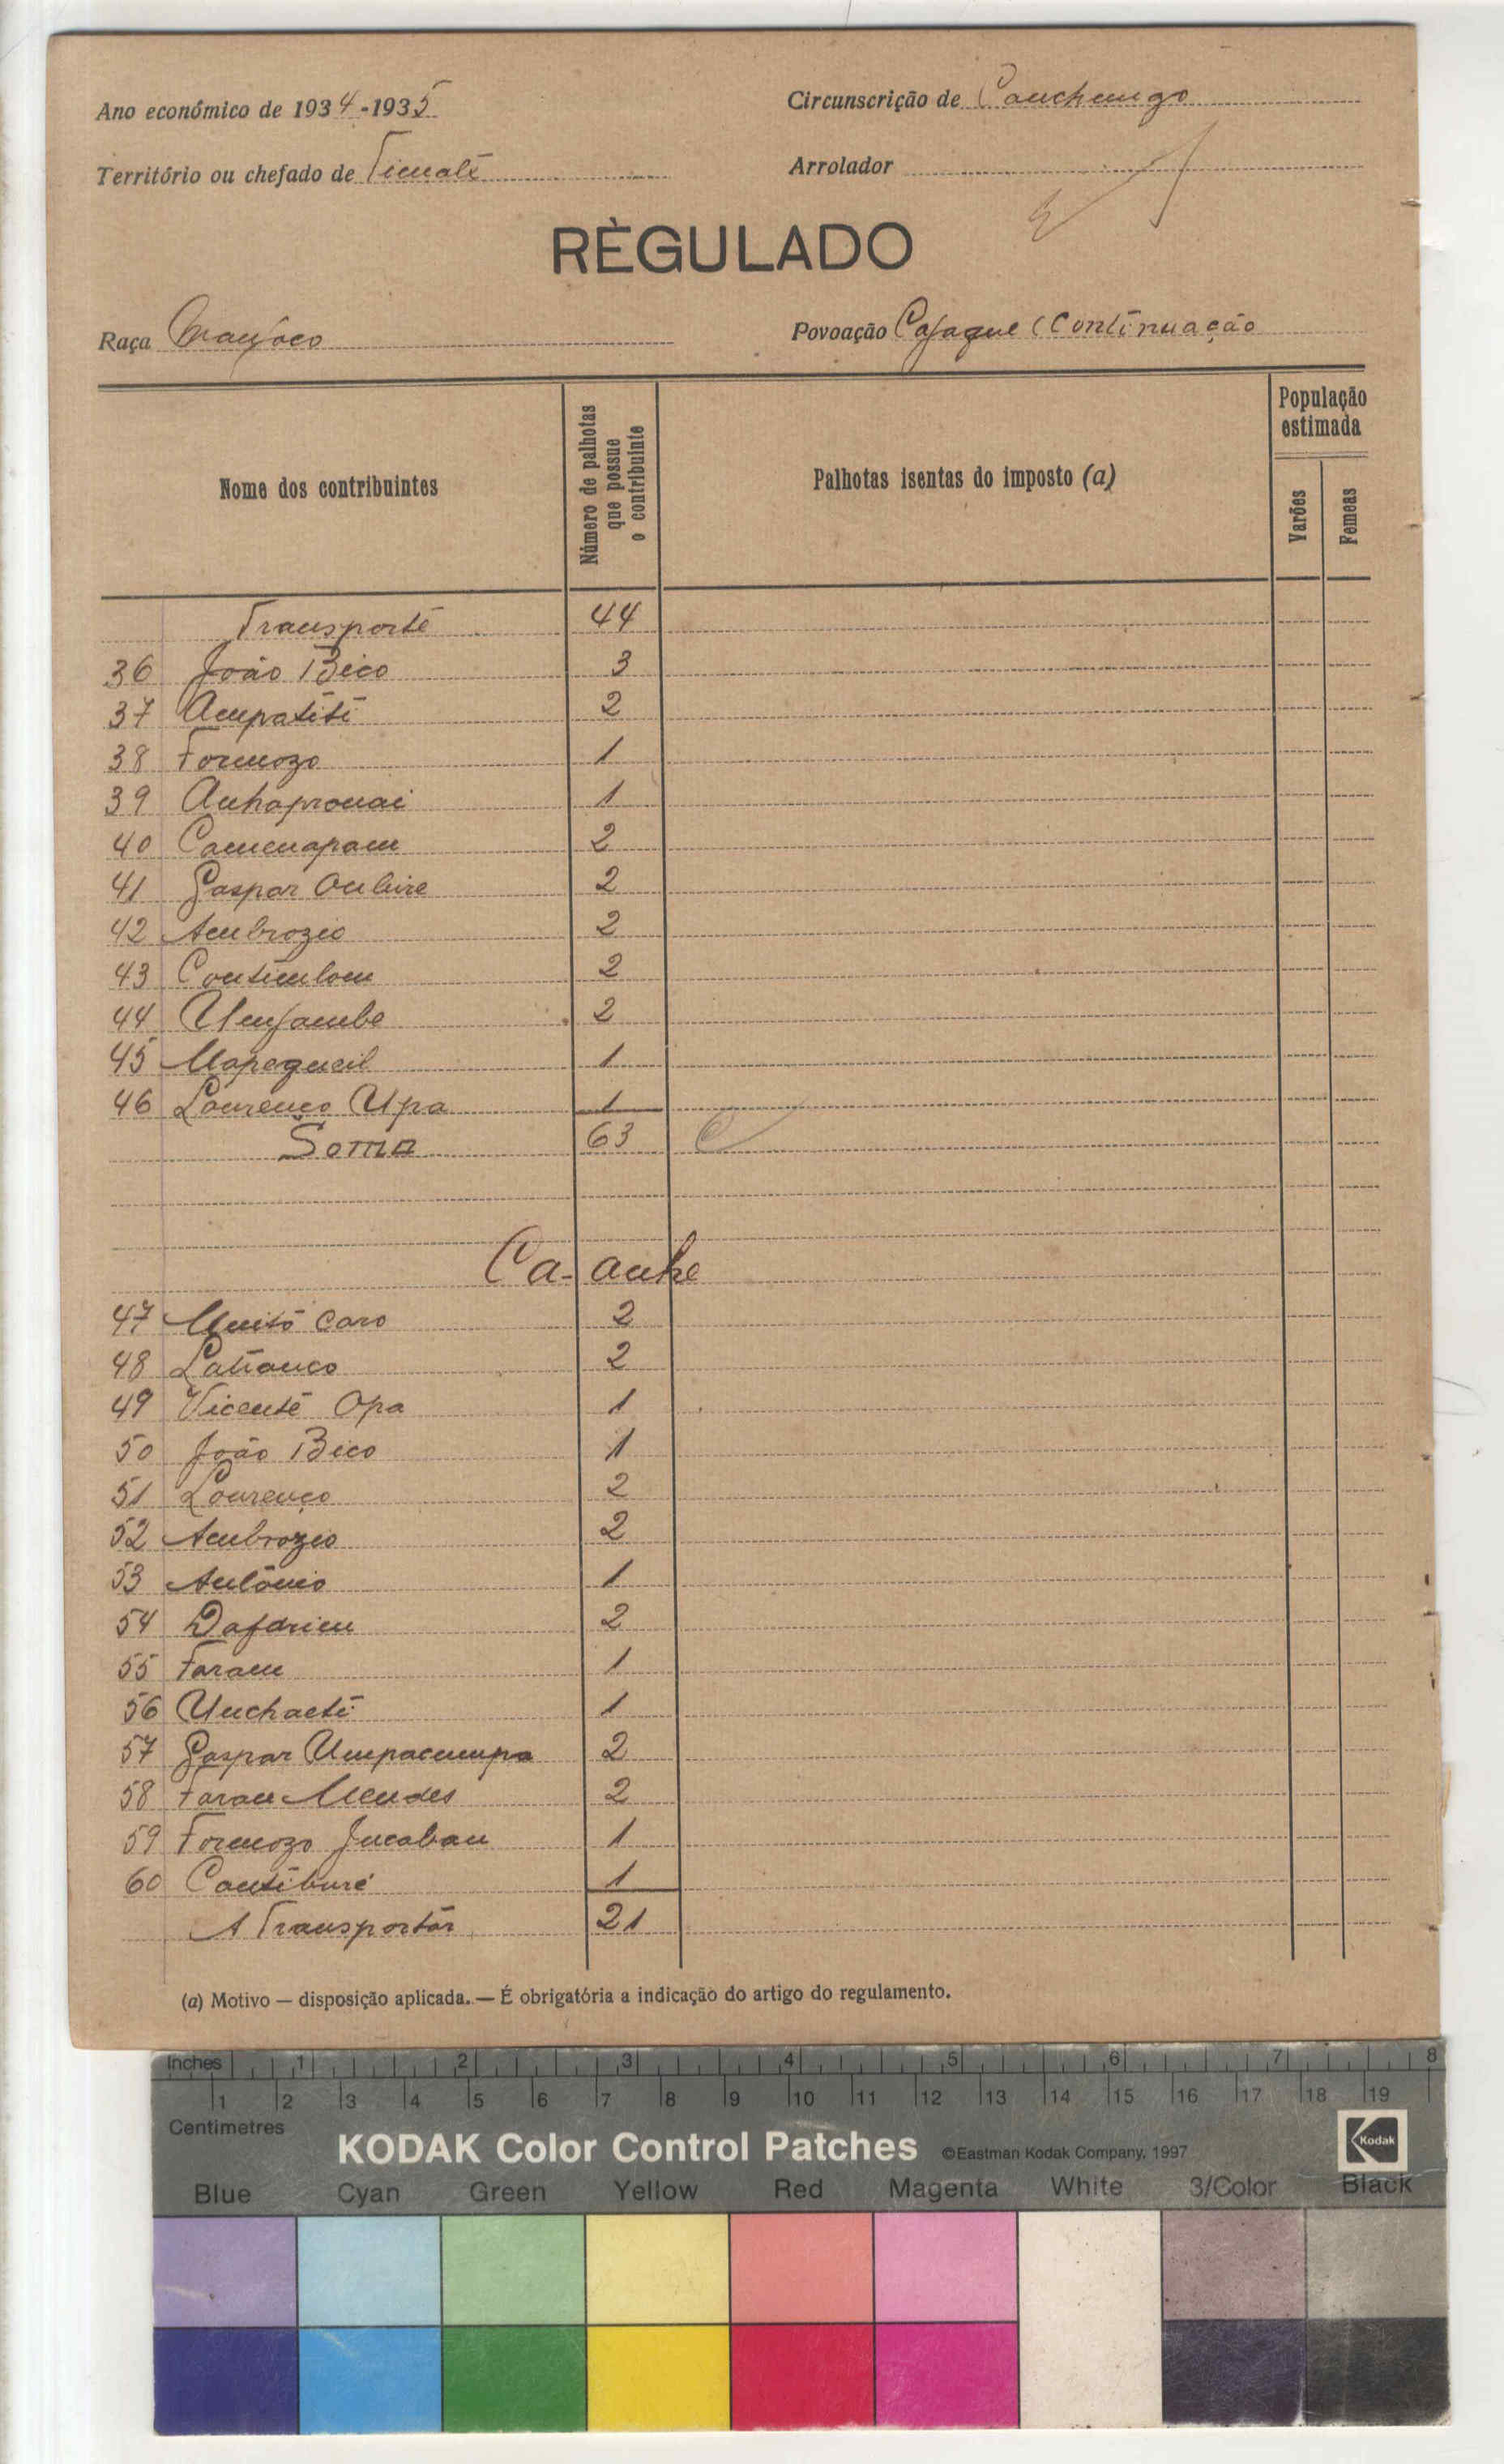 Ano económico de 1934-1935
Circunscrição de Canchungo
Território ou chefado de Ticualé
Arrolador
RÈGULADO
Raça Manjaco
Povoação Cajaque (Continuação
Nome dos contribuintes
Número de palhotas que possue o contribuinte
Palhotas isentas do imposto (a)
População estimada
Varões
Femeas
Transporte 44
36 João Bico 3
37 Acupatiti 2
38 Formozo 1
39 1
40 2
41 Gaspar 2
42 Ambrozio 2
43 2
44 Umjambe 2
45 1
46 Lourenço Upa 1
Soma 63
Ca-anhe
47 Muito Caro 2
48 2
49 Vicente Opa 1
50 João Bico 1
51 Lourenço 2
52 Ambrozio 2
53 António 1
54 2
55 Faram 1
56 Unchaeté 1
57 Gaspar 2
58 Faram Mendes 2
59 Formozo Jucaban 1
60 Cantiburé 1
A Transportar 21
(a) Motivo — disposição aplicada. — É obrigatória a indicação do artigo do regulamento.
Inches 1 2 3 4 5 6 7 8
1 2 3 4 5 6 7 8 9 10 11 12 13 14 15 16 17 18 19
Centimetres
KODAK Color Control Patches ©Eastman Kodak Company, 1997 Kodak
Blue Cyan Green Yellow Red Magenta White 3/Color Black